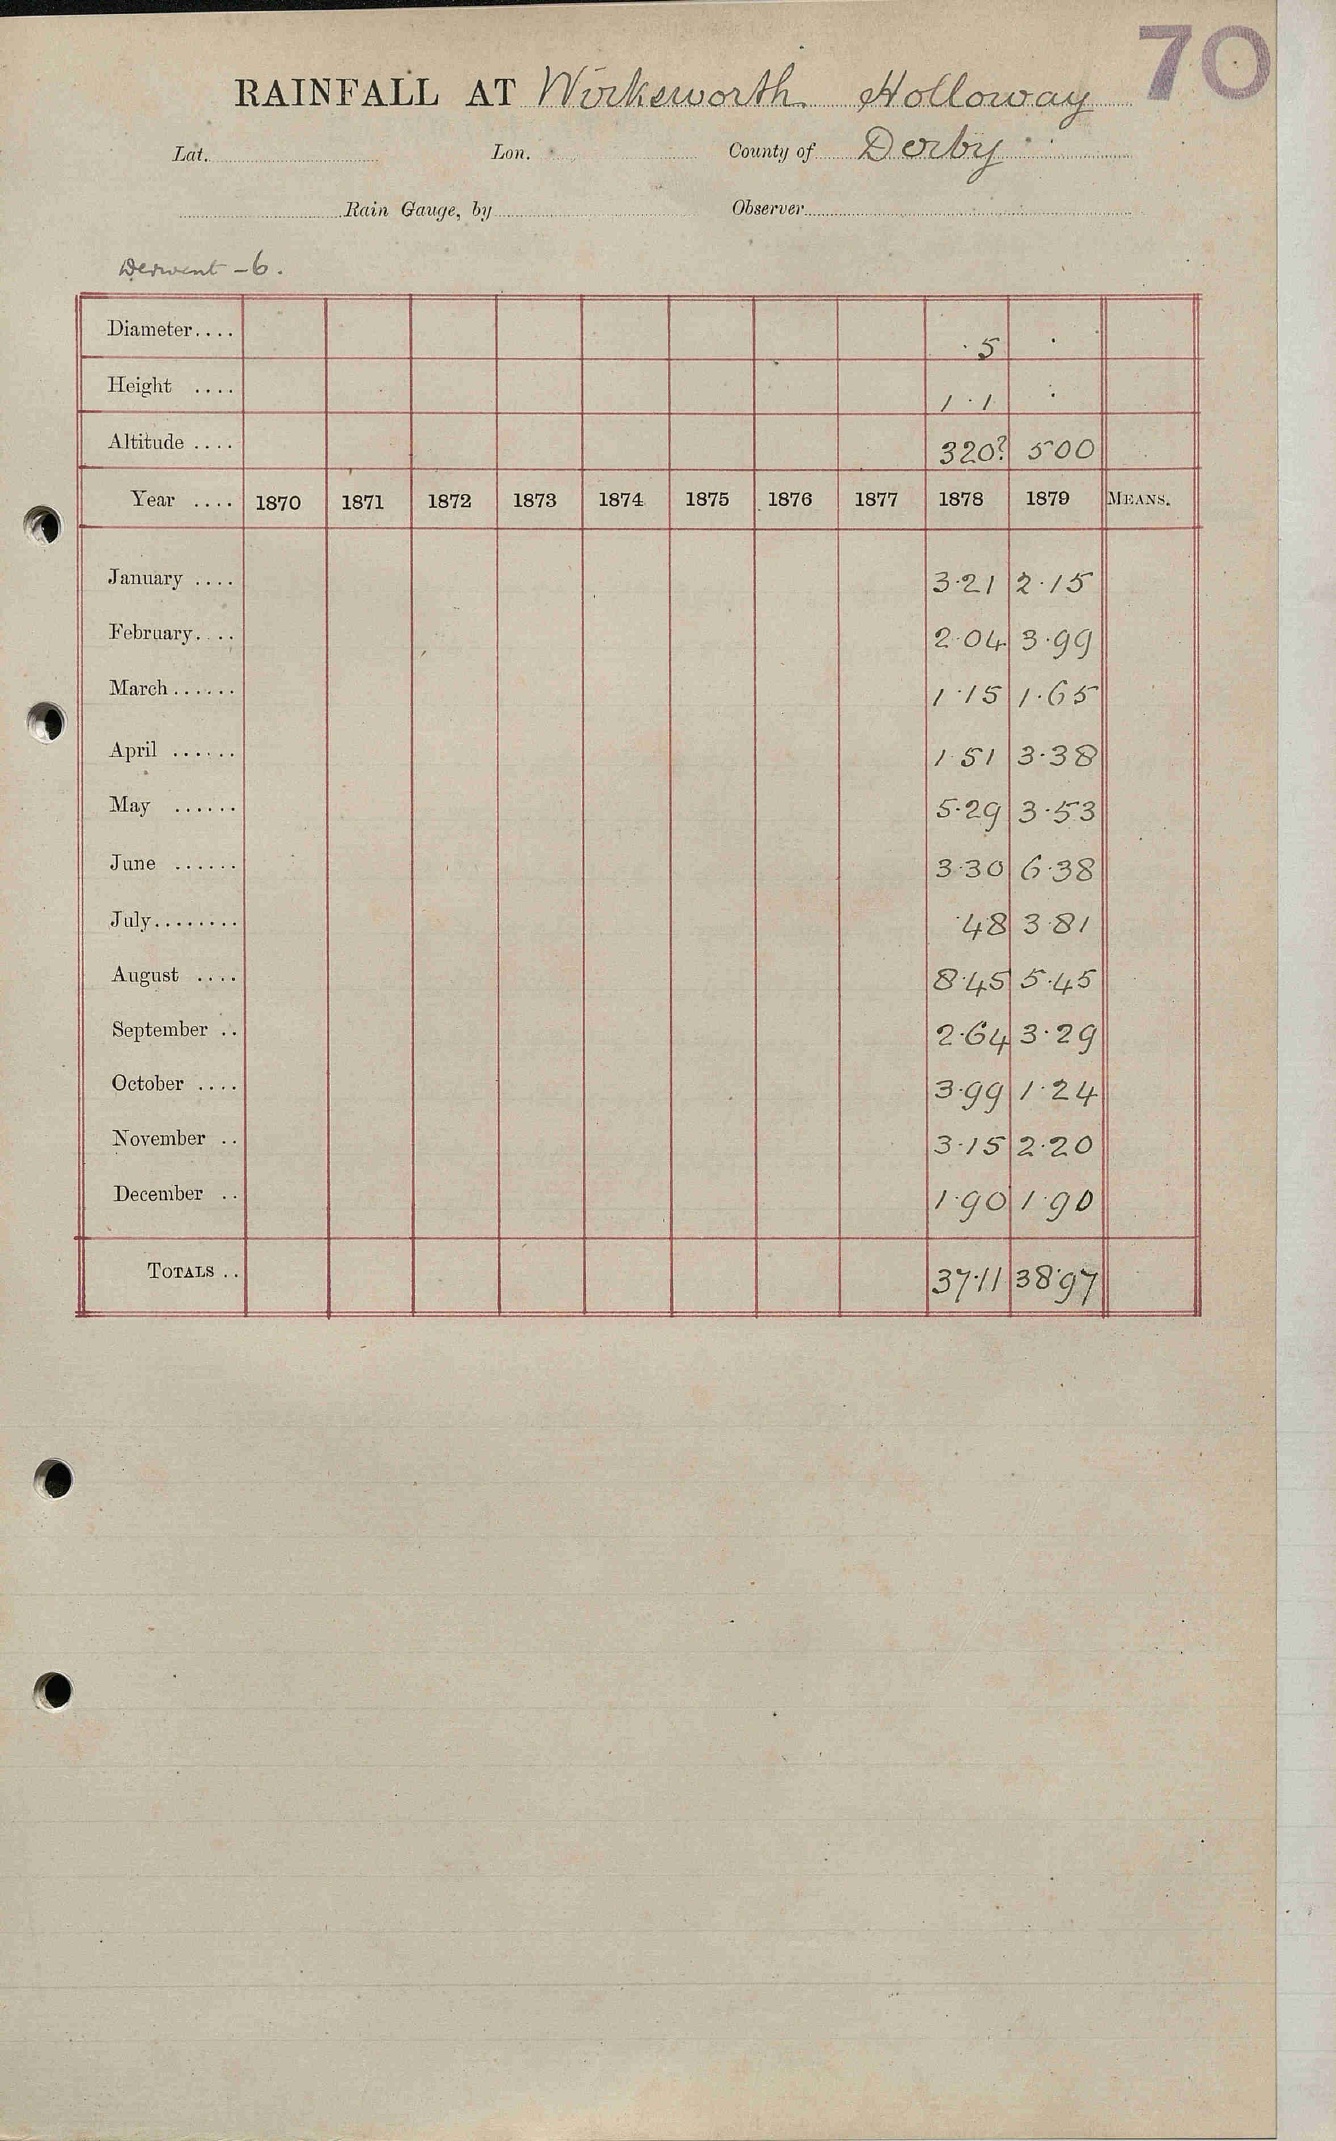 70
RAINFALL AT Wirksworth Holloway
Lat. Lon. County of Derby
Rain Gauge, by Observer
Derwent - 6.
Diameter.... 5
Height .... 1·1
Altitude .... 320? 500
Year .... 1870 1871 1872 1873 1874 1875 1876 1877 1878 1879 MEANS.
January .... 3·21 2·15
February.... 2·04 3·99
March...... 1·15 1·65
April ...... 1·51 3·38
May ...... 5·29 3·53
June ...... 3·30 6·38
July........ ·48 3·81
August .... 8·45 5·45
September .. 2·64 3·29
October .... 3·99 1·24
November .. 3·15 2·20
December .. 1·90 1·90
TOTALS .. 37·11 38·97